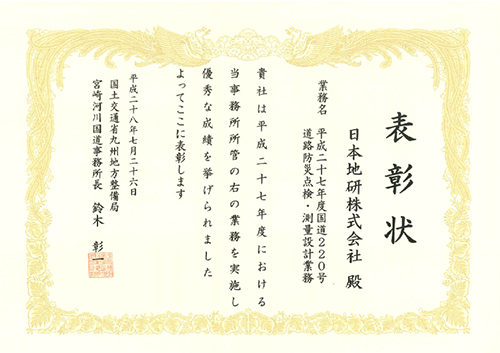 表彰状
日本地研株式会社 殿
業務名 平成二十七年度国道220号
道路防災点検・測量設計業務
貴社は平成二十七年度における
当事務所所管の右の業務を実施し
優秀な成績を挙げられました
よってここに表彰します
平成二十八年七月二十六日
国土交通省九州地方整備局
宮崎河川国道事務所長 鈴木 彰一